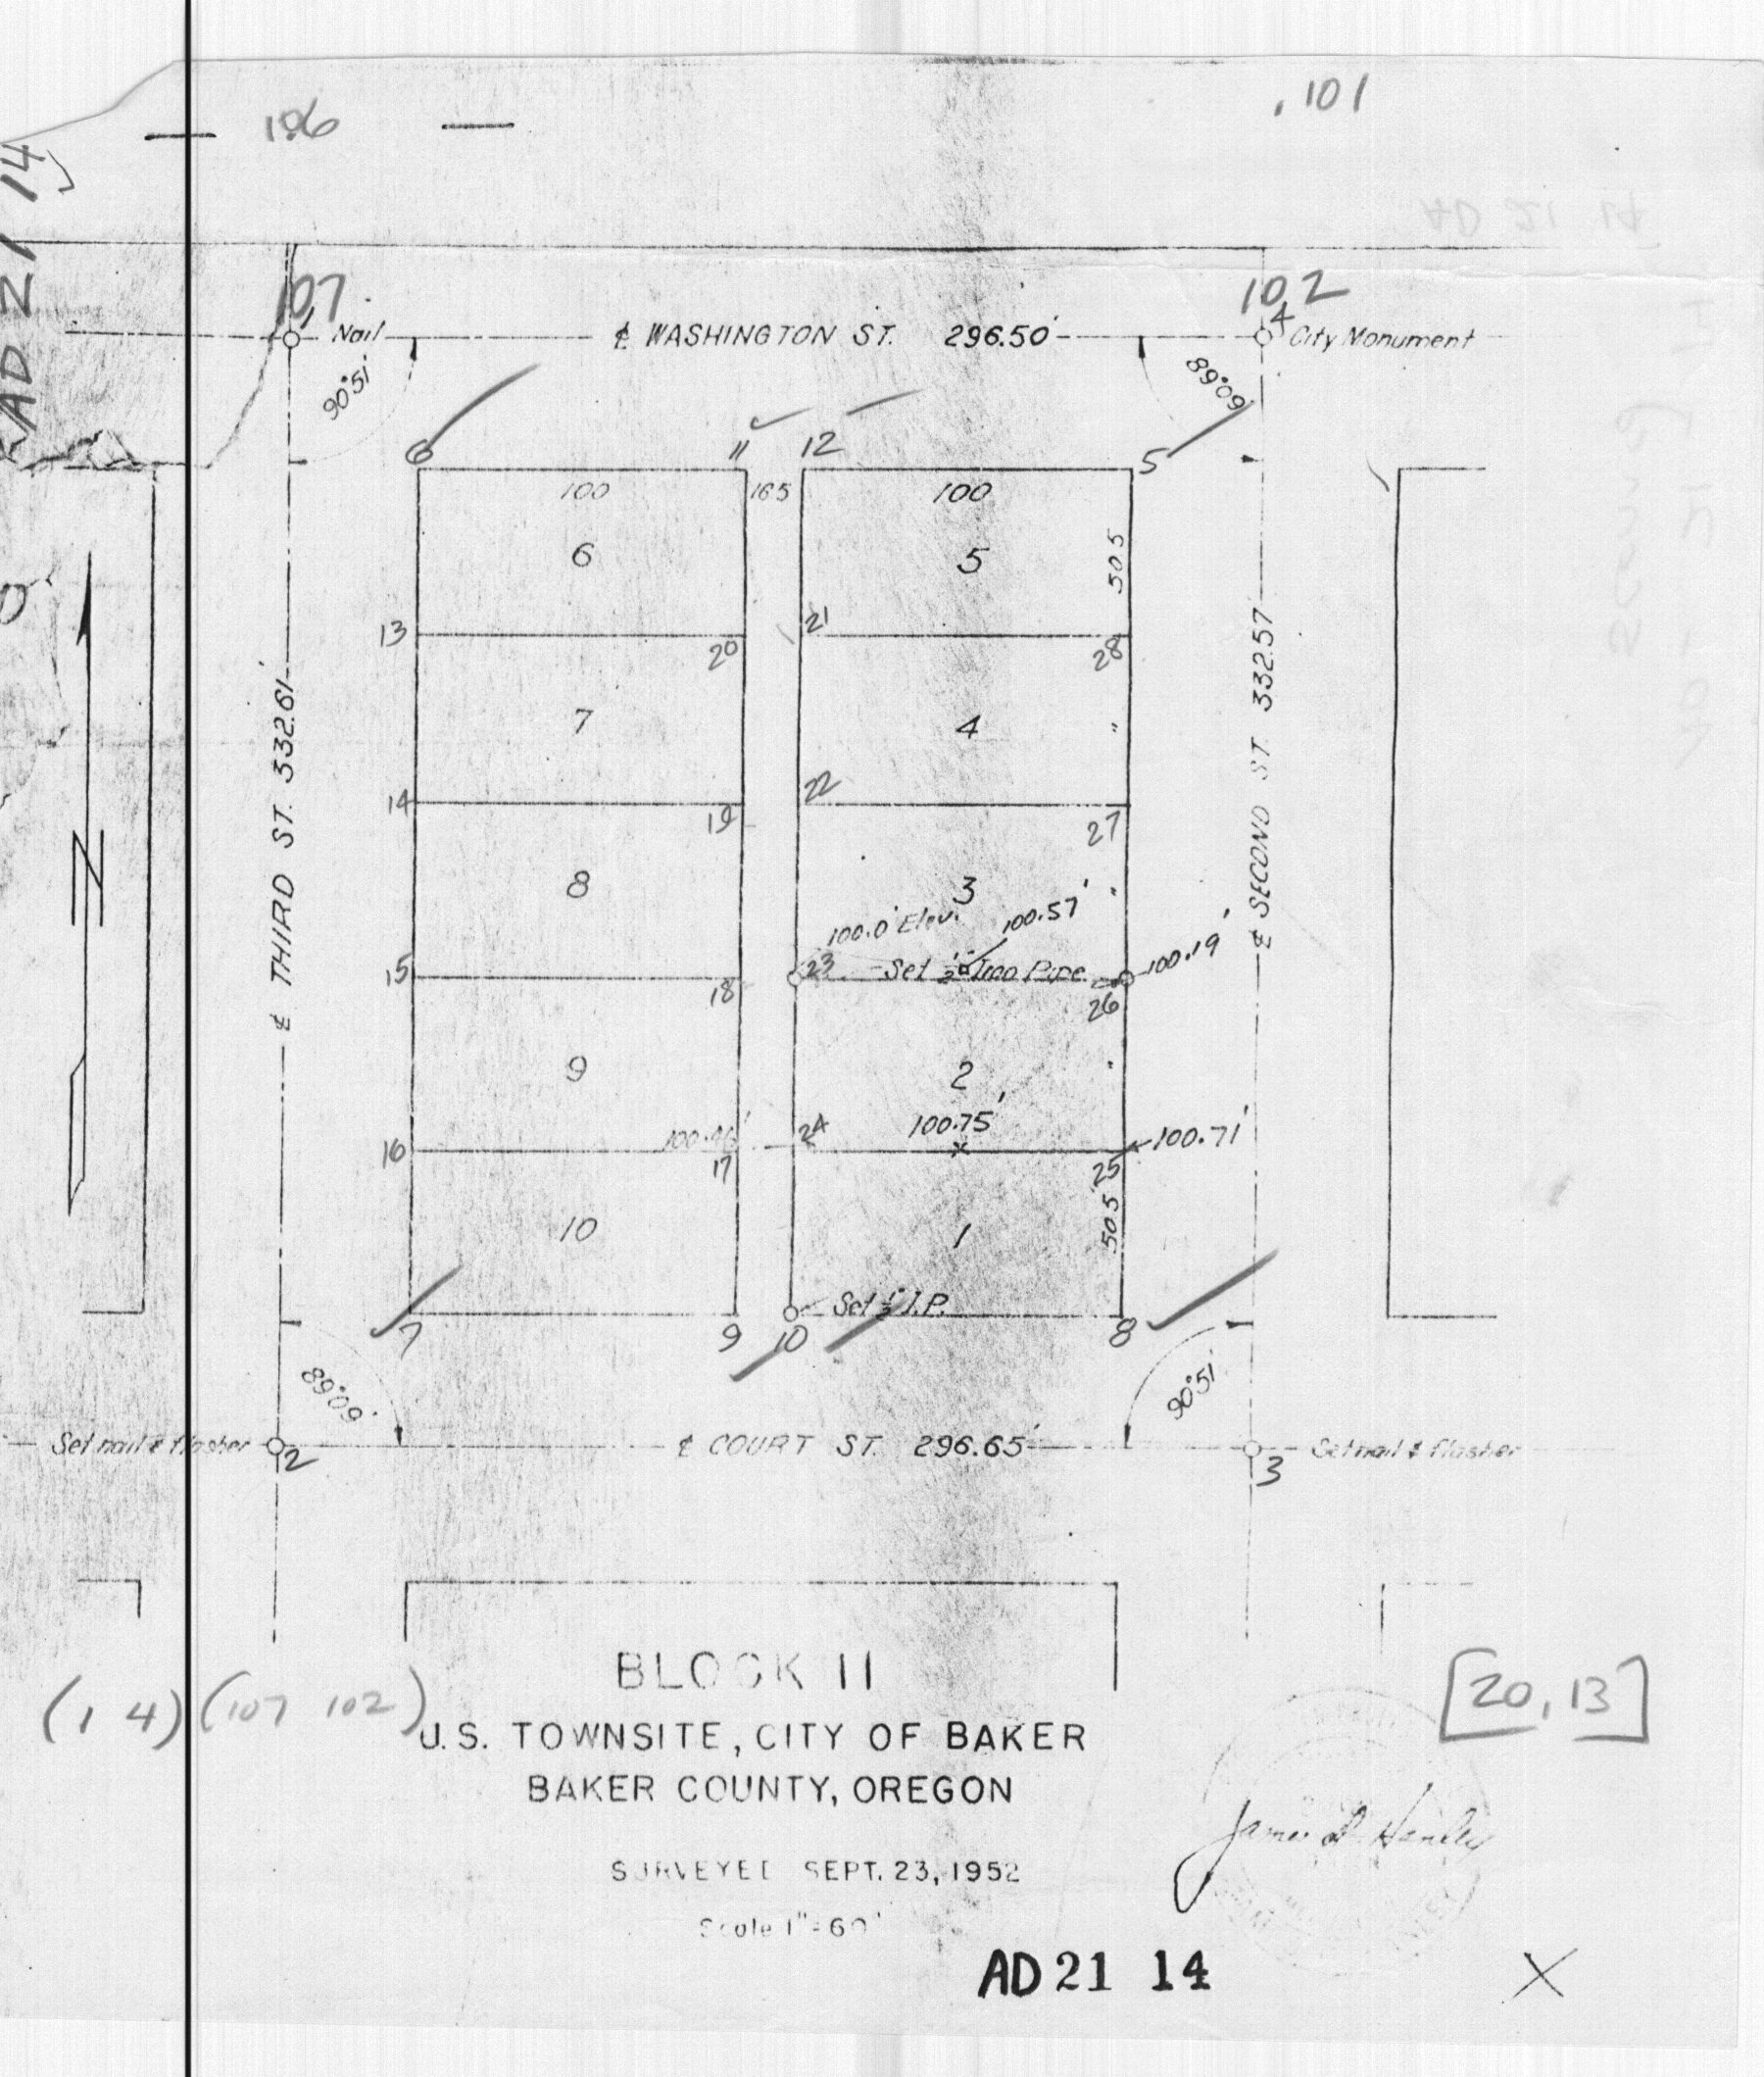 106
.101
AD 21 14
107
102
4
Nail
℄ WASHINGTON ST. 296.50'
City Monument
90°51'
89°09'
6
11
12
5
100
165
100
6
5
505
13
20
21
28
℄ THIRD ST. 332.61'
℄ SECOND ST. 332.57'
7
4
"
14
19
22
27
N
8
3
100.0' Elev.
100.57'
100.19'
15
18
23
Set ½" Iron Pipe
26
9
2
100.75'
100.71'
16
17
24
25
10
1
505
Set ½" I.P.
7
9
10
8
89°09'
90°51'
Set nail & flasher
2
℄ COURT ST. 296.65'
3
Set nail & flasher
BLOCK 11
(1 4) (107 102)
[20, 13]
U.S. TOWNSITE, CITY OF BAKER
BAKER COUNTY, OREGON
SURVEYED SEPT. 23, 1952
Scale 1" = 60'
AD 21 14
X